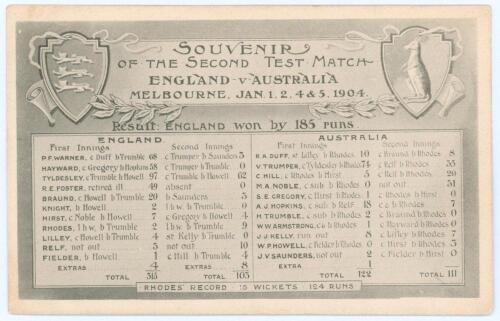 SOUVENIR
OF THE SECOND TEST MATCH
ENGLAND v AUSTRALIA
MELBOURNE, JAN. 1. 2. 4 & 5. 1904.
Result: ENGLAND won by 185 runs.
ENGLAND
First Innings Second Innings
P.F. WARNER, c Duff b Trumble 68 c Trumper b Saunders 3
HAYWARD, c Gregory b Hopkins 58 c Trumper b Trumble 0
TYLDESLEY, c Trumble b Howell 97 c Trumble b Howell 62
R.E FOSTER, retired ill 49 absent 0
BRAUND, c Howell b Trumble 20 b Saunders 3
KNIGHT, b Howell 2 lbw b Trumble 0
HIRST, c Noble b Howell 7 c Gregory b Howell 4
RHODES, lbw, b Trumble 2 lbw b Trumble 9
LILLEY, c Howell b Trumble 4 st Kelly b Trumble 0
RELF, not out 3 not out 10
FIELDER, b Howell 1 c Hill b Trumble 4
EXTRAS 4 EXTRAS 8
TOTAL 315 TOTAL 103
AUSTRALIA
First Innings Second Innings
R.A. DUFF, st Lilley b Rhodes 10 c Braund b Rhodes 8
V. TRUMPER, c Tyldesley b Rhodes 74 c Relf b Rhodes 35
C. HILL, c Rhodes b Hirst 5 c Relf b Rhodes 20
M.A. NOBLE, c sub b Rhodes 0 not out 31
S.E. GREGORY, c Hirst b Rhodes 1 c Rhodes b Hirst 0
A.J. HOPKINS, c sub b Relf 18 c & b Rhodes 7
H. TRUMBLE, c sub b Rhodes 2 c Braund b Rhodes 0
W.W. ARMSTRONG, c & b Rhodes 1 c Hayward b Rhodes 0
J.J. KELLY, run out 8 c Lilley b Rhodes 7
W.P. HOWELL, c Fielder b Rhodes 0 c Hirst b Rhodes 3
J.V. SAUNDERS, not out 2 c Fielder b Hirst 0
EXTRA 1
TOTAL 122 TOTAL 111
RHODES' RECORD 15 WICKETS 124 RUNS